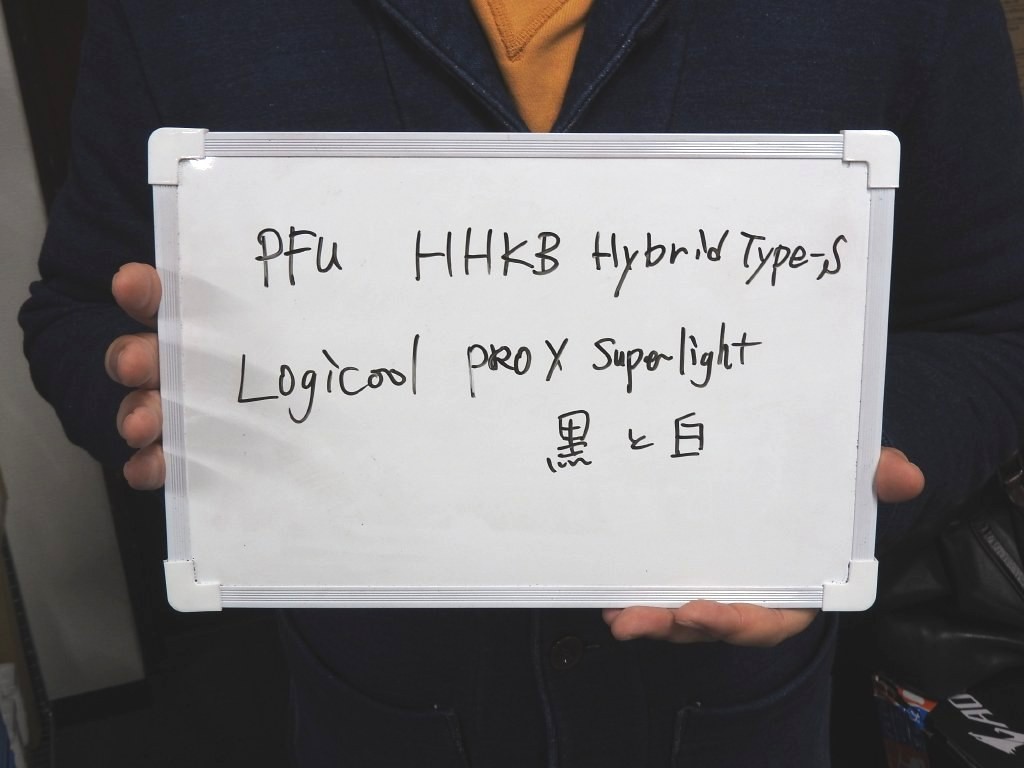 PFU HHKB Hybrid Type-S
Logicool PRO X Superlight
黒と白